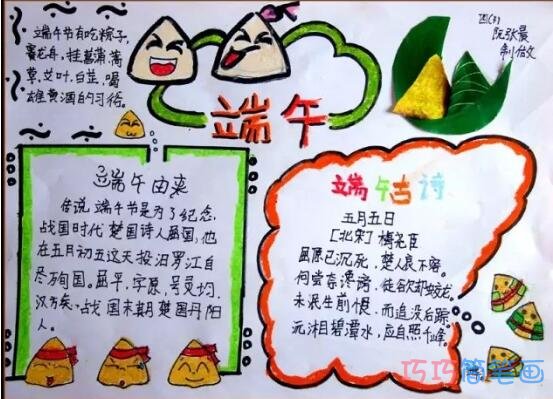 端午节有吃粽子,
赛龙舟,挂菖蒲,蒿
草,艾叶,白芷,喝
雄黄酒的习俗。
四(3)
阮张晨
制做
端午
端午由来
传说端午节是为了纪念,
战国时代楚国诗人屈原,他
在五月初五这天投汨罗江自
尽殉国。屈平,字原,号灵均,
汉方矣,战国末期楚国丹阳
人。
端午古诗
五月五日
[北宋]梅尧臣
屈原已沉死,楚人哀不容。
何尝奈谗谤,徒欲却蛟龙。
未泯生前恨,而追没后踪。
沅湘碧潭水,应自照千峰。
巧巧简笔画